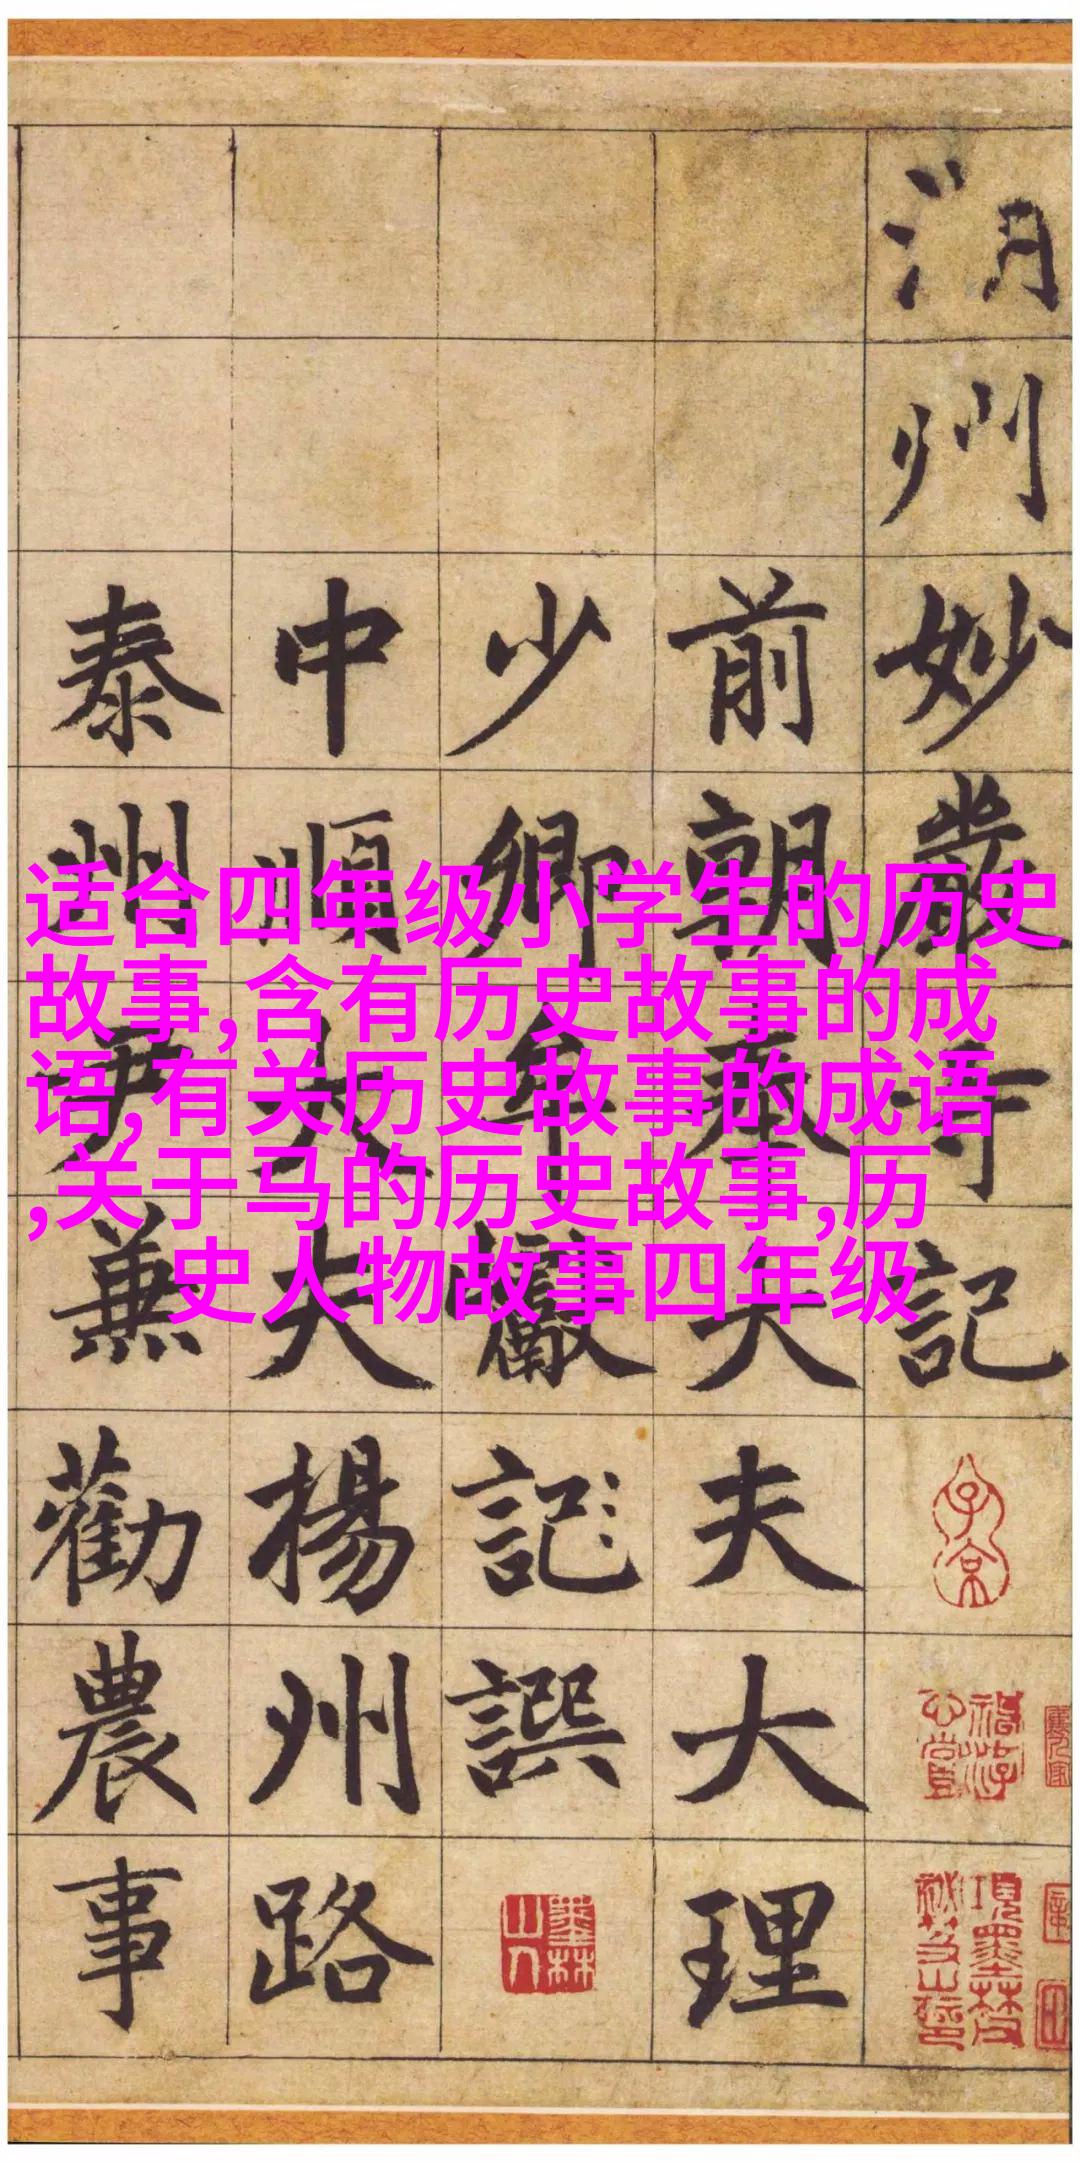 湖州妙嚴寺記
前朝奉大夫大理
少卿牟巘記譔
中順大夫揚州路
泰州尹兼勸農事
适合四年级小学生的历史
故事,含有历史故事的成
语,有关历史故事的成语
,关于马的历史故事,历
史人物故事四年级
子京
墨林山人